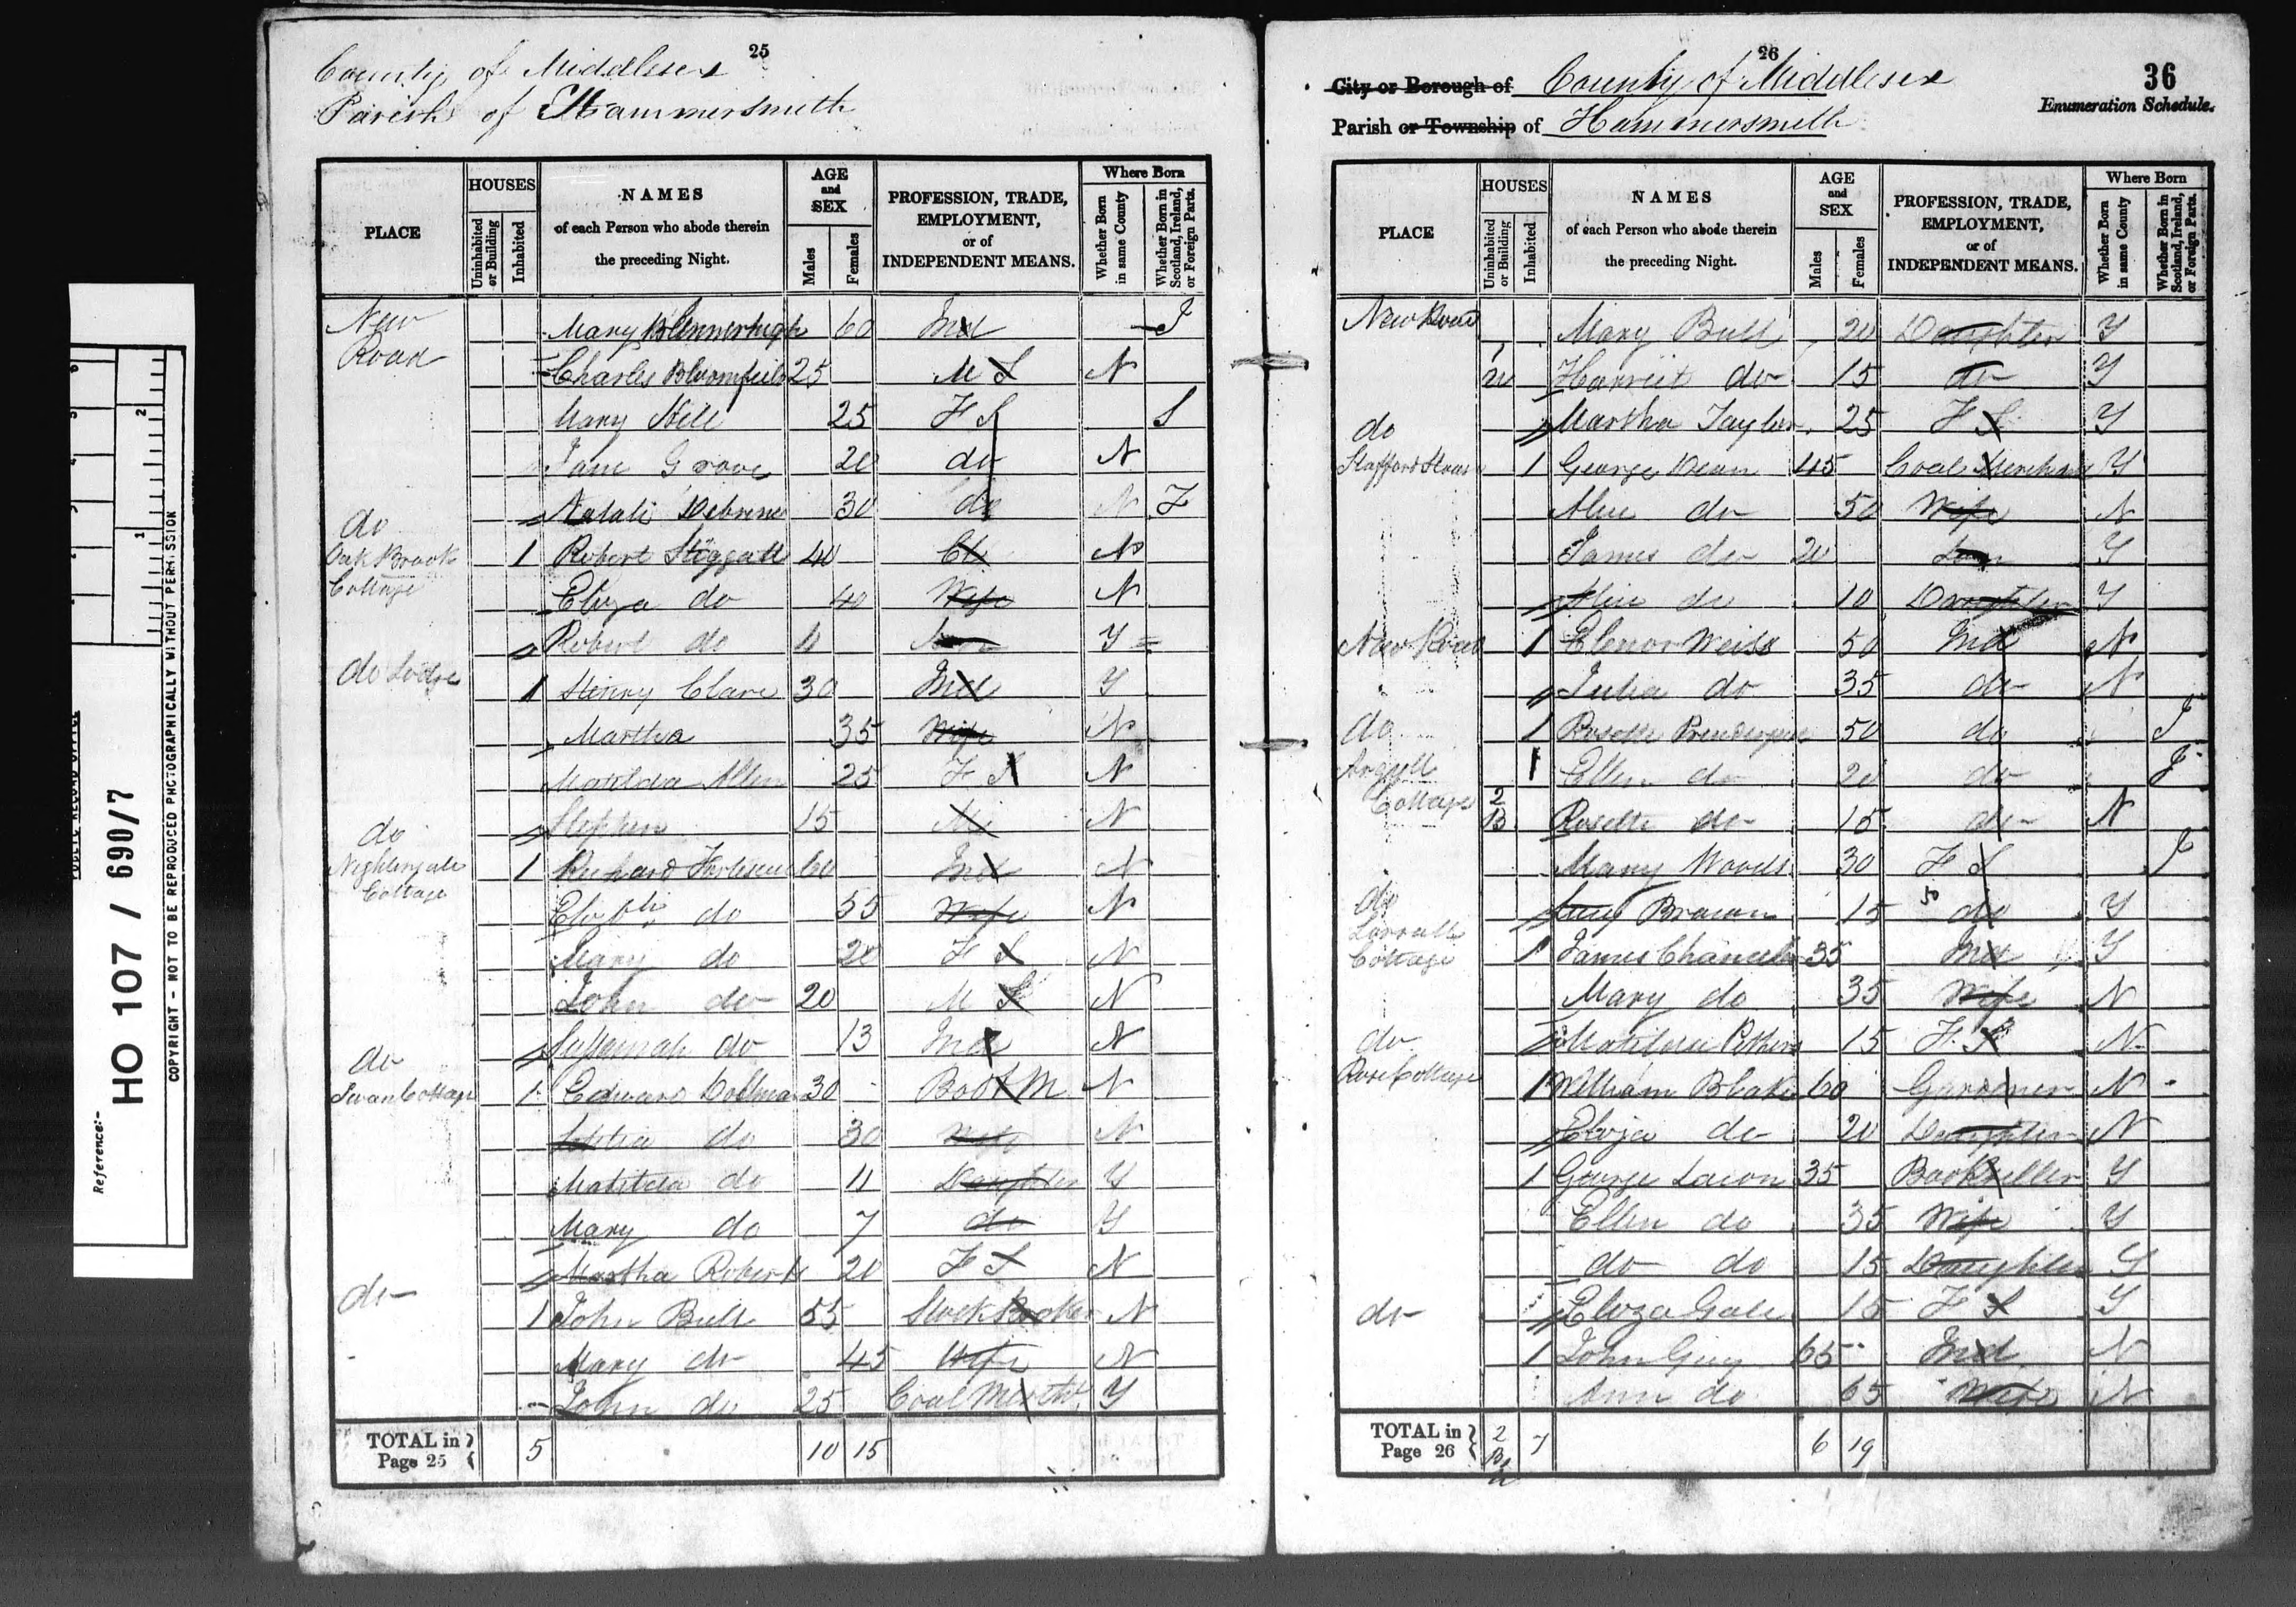 Reference:-
HO 107 / 690/7
COPYRIGHT - NOT TO BE REPRODUCED PHOTOGRAPHICALLY WITHOUT PERMISSION
25
County of Middlesex
Parish of Hammersmith
PLACE
HOUSES
Uninhabited or Building
Inhabited
NAMES
of each Person who abode therein
the preceding Night.
AGE
and
SEX
Males
Females
PROFESSION, TRADE,
EMPLOYMENT,
or of
INDEPENDENT MEANS.
Where Born
Whether Born in same County
Whether Born in Scotland, Ireland, or Foreign Parts.
New Road Mary 60 Ind I
Charles Bloomfield 25 M S N
Mary Hill 25 F S S
Jane Grove 20 do N
30 do N F
do Oak Brook Cottage 1 Robert Stoggall 40 N
Eliza do 40 Wife N
Robert do Son Y
do Lodge 1 Henry Clare 30 Ind Y
Martha 35 Wife N
Matilda Allen 25 F S N
Stephen 15 N
do Nightingale Cottage 1 Richard 60 Ind N
Elizbth do 55 Wife N
Mary do 20 F S N
John do 20 M S N
Susannah do 13 Ind N
do Swan Cottage 1 Edward Dollman 30 Boot M N
do 30 Wife N
Matilda do 11 Daughter Y
Mary do 7 do Y
Martha Roberts 20 F S N
do 1 John Bull 55 Stock Broker N
Mary do 45 Wife N
John do 25 Coal Mercht Y
TOTAL in Page 25 5 10 15
26
City or Borough of County of Middlesex
Parish or Township of Hammersmith
36
Enumeration Schedule.
PLACE
HOUSES
Uninhabited or Building
Inhabited
NAMES
of each Person who abode therein
the preceding Night.
AGE
and
SEX
Males
Females
PROFESSION, TRADE,
EMPLOYMENT,
or of
INDEPENDENT MEANS.
Where Born
Whether Born in same County
Whether Born in Scotland, Ireland, or Foreign Parts.
New Road Mary Bull 20 Daughter Y
1 u Harriet do 15 do Y
Martha Taylor 25 F S Y
do Stafford House 1 George Dean 45 Coal Merchant Y
Alice do 50 Wife N
James do 20 Son Y
Alice do 10 Daughter Y
New Road 1 Elenor Weiss 50 Ind N
Julia do 35 do N
do 1 Rosette 50 do I
Argyll Cottage 1 Ellen do 20 do I
2 B Rosette do 15 do N
Mary Woods 30 F S I
Lucy Brown 15 do Y
do Cottage 1 James Chancellor 35 Ind Y
Mary do 35 Wife N
Matilda 15 F S N
do Rose Cottage 1 William Blake 60 Gardener N
Eliza do 20 Daughter N
1 George Lacon 35 Bookseller Y
Ellen do 35 Wife Y
do do 15 Daughter Y
Eliza Gale 15 F S Y
do 1 John Guy 65 Ind N
Ann do 65 Wife N
TOTAL in Page 26 2 B 1 u 7 6 19